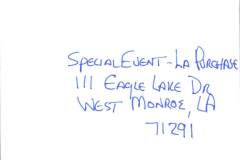 SPECIAL EVENT - LA PURCHASE
111 EAGLE LAKE DR
WEST MONROE, LA
71291